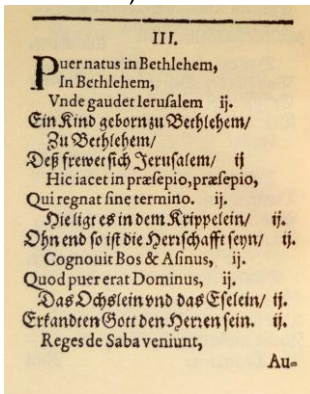 III.
Puer natus in Bethlehem,
In Bethlehem,
Vnde gaudet Ierusalem ij.
Ein Kind geborn zu Bethlehem/
Zu Bethlehem/
Deß frewet sich Jerusalem/ ij
Hic iacet in præsepio, præsepio,
Qui regnat sine termino. ij.
Hie ligt es in dem Krippelein/ ij.
Ohn end so ist die Herrschafft seyn/ ij.
Cognouit Bos & Asinus, ij.
Quod puer erat Dominus, ij.
Das Ochslein vnd das Eselein/ ij.
Erkandten Gott den Herren sein. ij.
Reges de Saba veniunt,
Au-